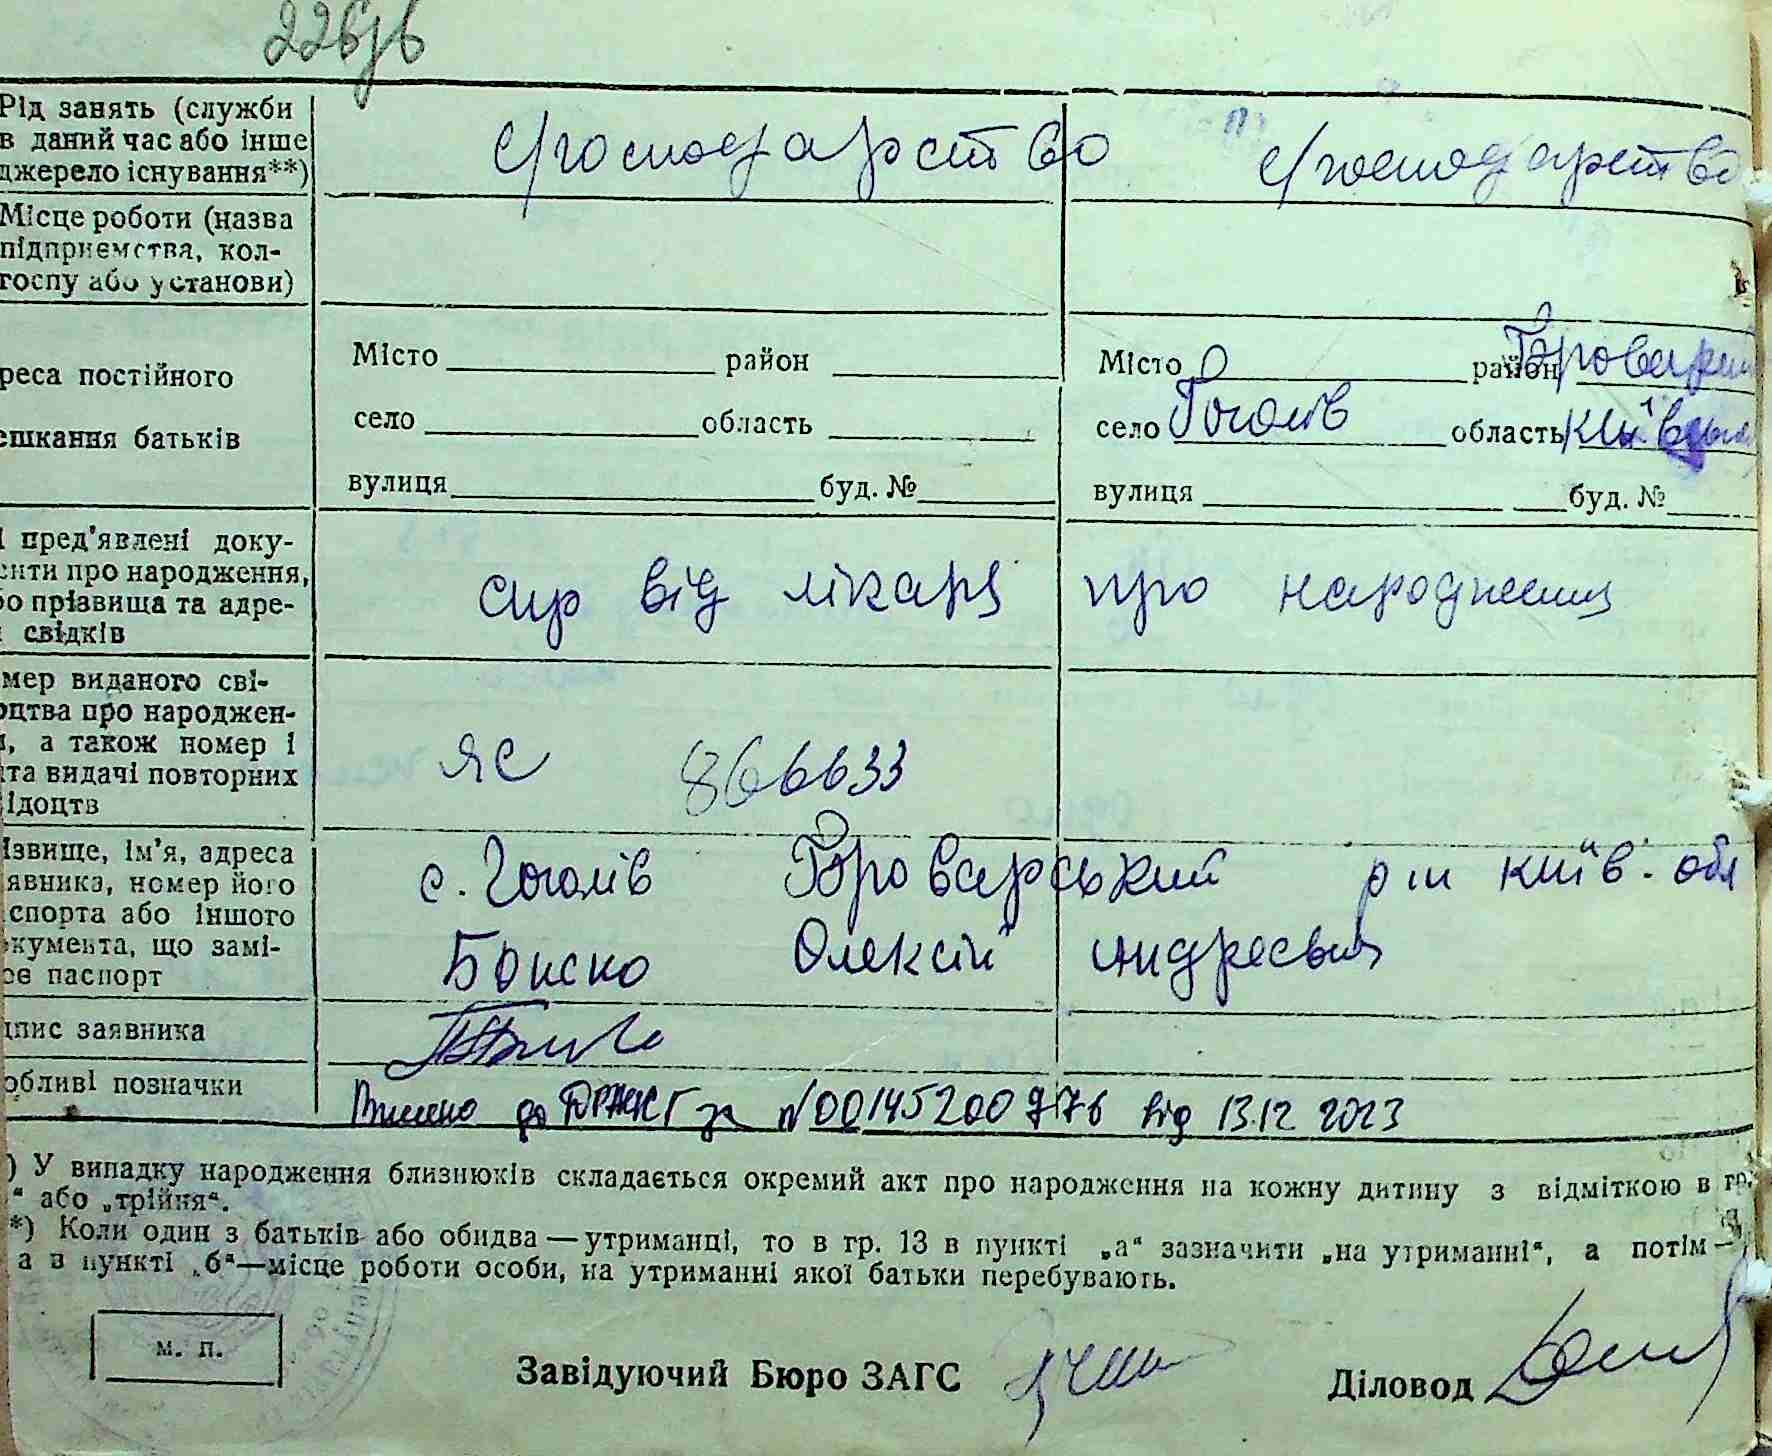 226/в
Рід занять (служби
в даний час або інше
джерело існування**)
с/господарство с/господарство
Місце роботи (назва
підприємства, кол-
госпу або установи)
Місто район Місто район Броварський
реса постійного
село область село Гоголів область Київська
ешкання батьків
вулиця буд. № вулиця буд. №
і пред'явлені доку-
енти про народження,
бо прізвища та адре-
свідків
спр від лікаря про народження
мер виданого сві-
оцтва про народжен-
я, а також номер і
та видачі повторних
ідоцтв
ЯС 866633
ізвище, ім'я, адреса
явника, номер його
спорта або іншого
окумента, що замі-
ює паспорт
с. Гоголів Броварський р-н Київ. обл
Бойко Олексій Андреєвич
дпис заявника
обливі позначки
Внесено до ДРАЦСГ за №00145200776 від 13.12 2023
) У випадку народження близнюків складається окремий акт про народження на кожну дитину з відміткою в гр.
“ або „трійня“.
*) Коли один з батьків або обидва — утриманці, то в гр. 13 в пункті „а“ зазначити „на утриманні“, а потім —
а в пункті „б“—місце роботи особи, на утриманні якої батьки перебувають.
м. п.
Завідуючий Бюро ЗАГС Діловод